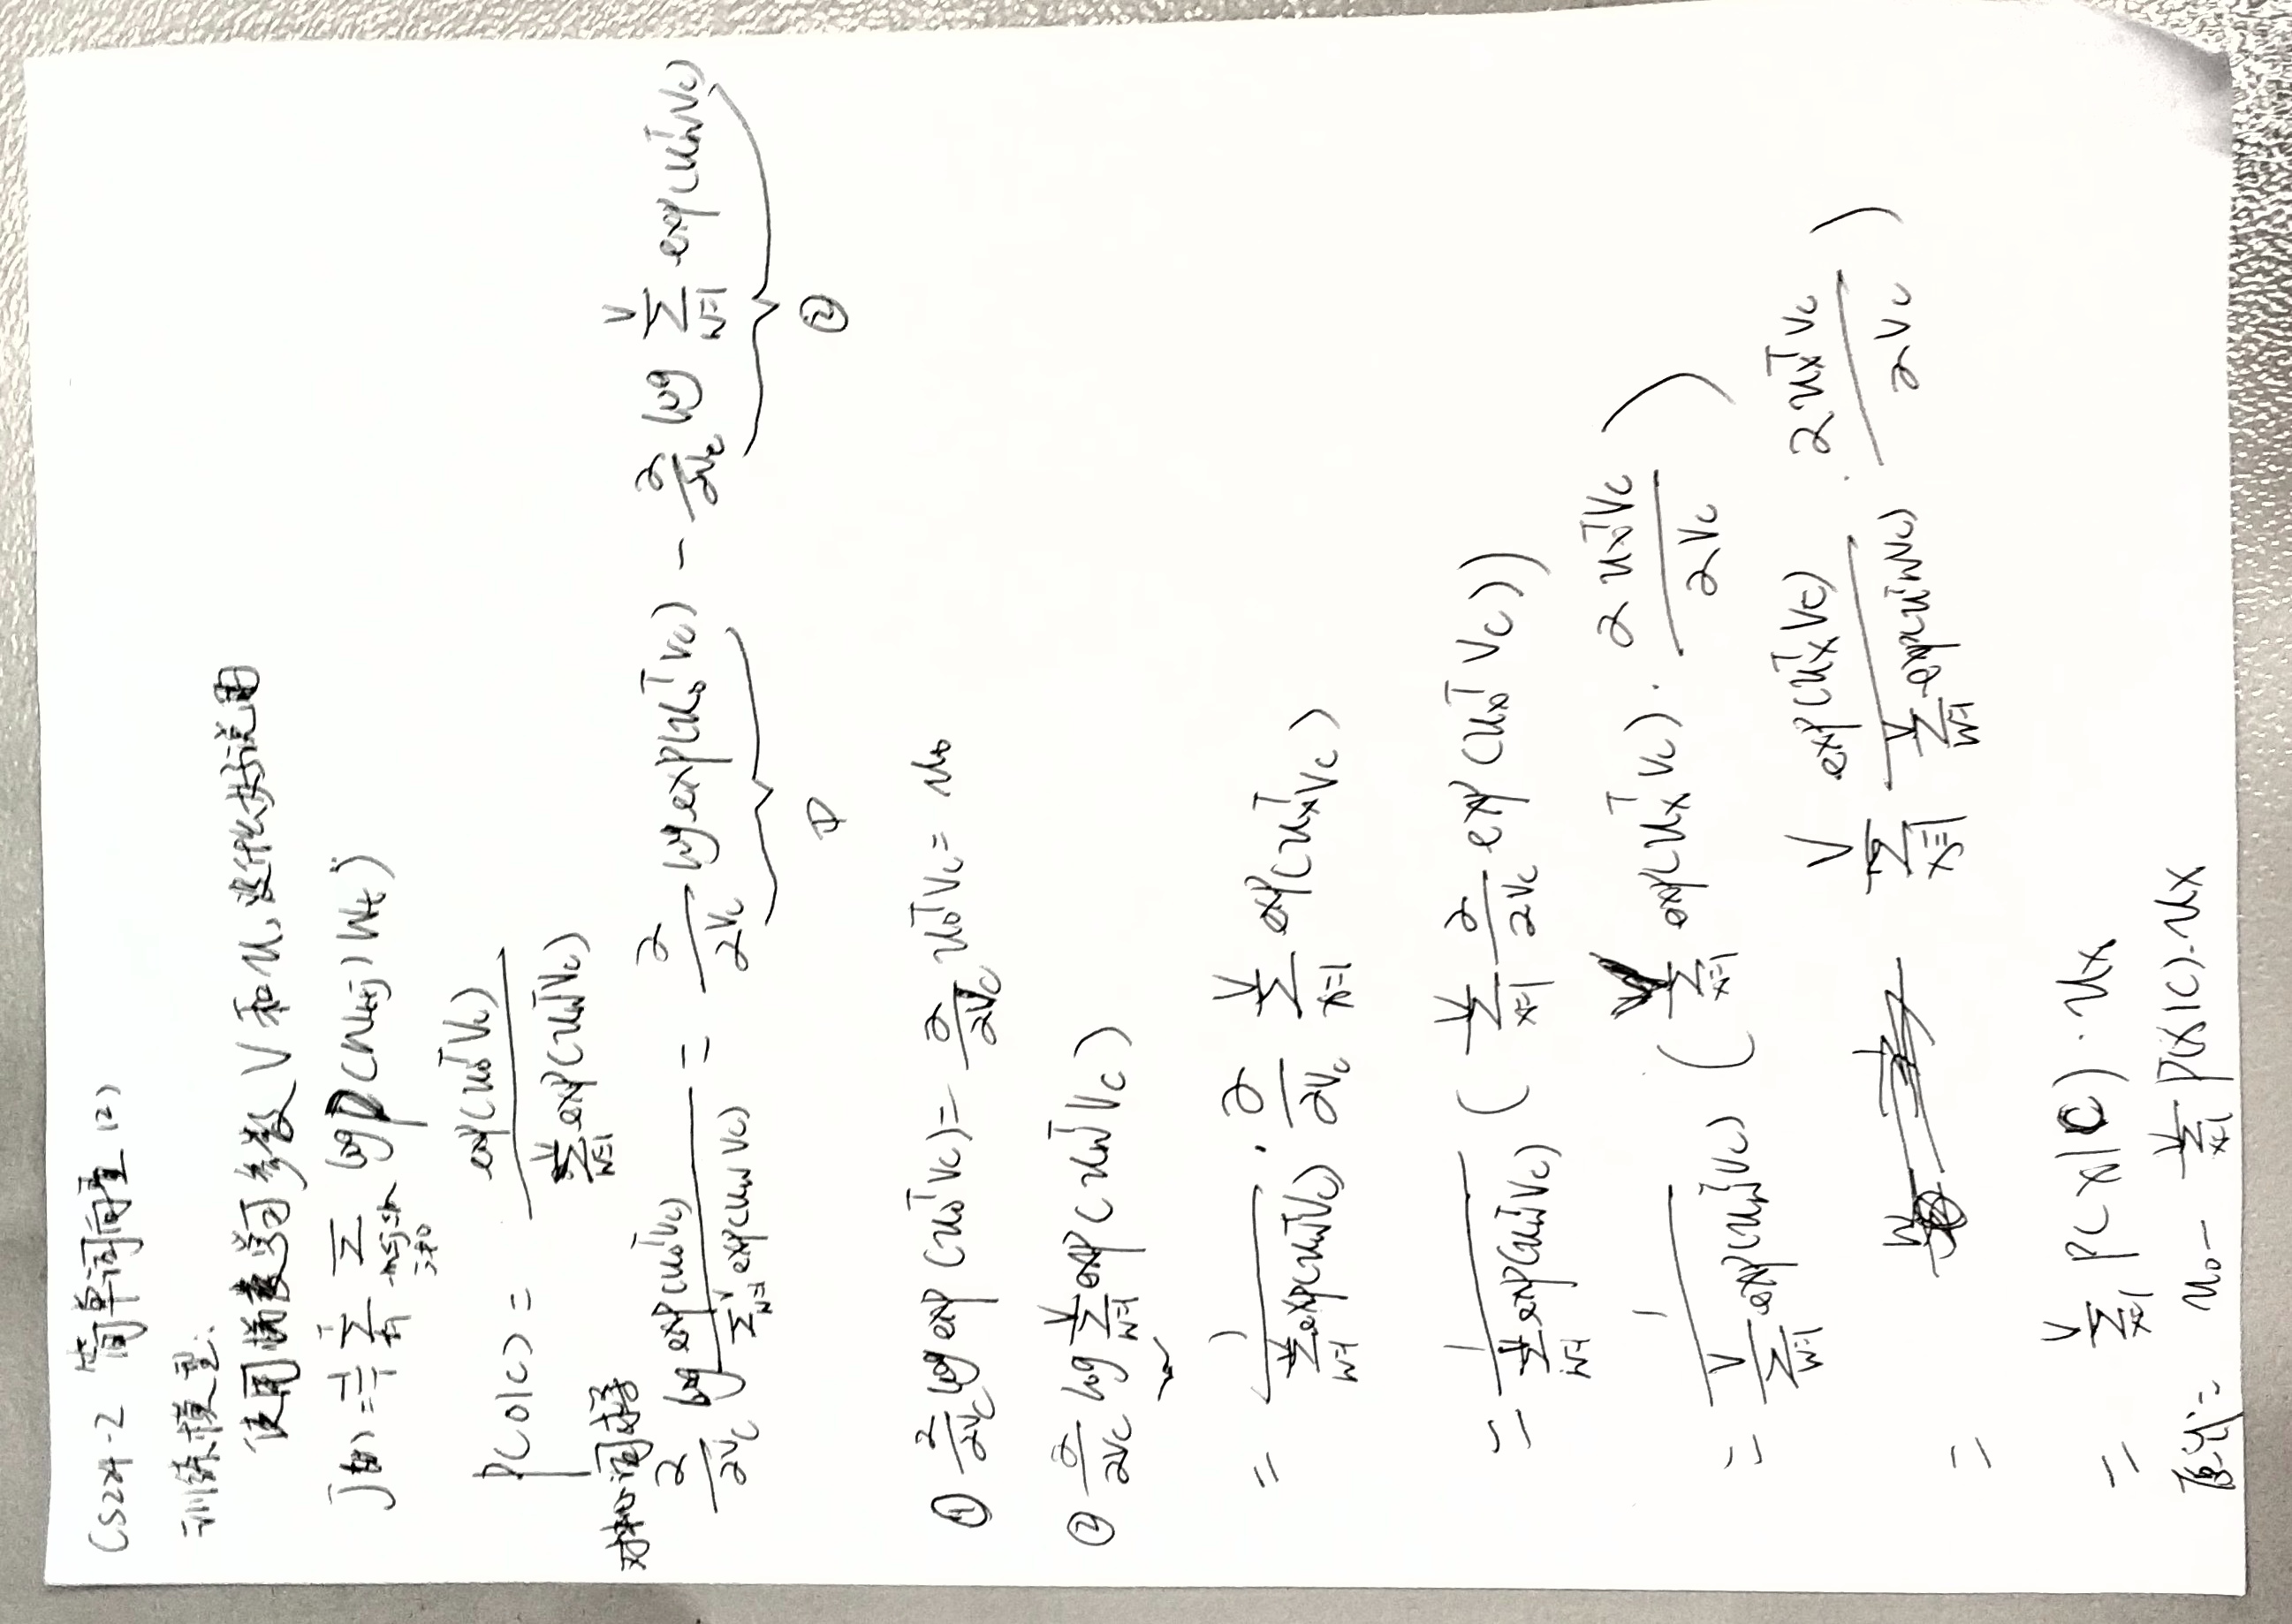 CS224-2 简单词向量(2)
训练模型:
使用梯度学习参数 V 和 u, 没什么好说的
J(θ) = -1/T ∑_{t=1}^{T} ∑_{-m≤j≤m, j≠0} log p(w_{t+j} | w_t)
p(o|c) = exp(u_o^T v_c) / ∑_{w=1}^{V} exp(u_w^T v_c)
对中心词求导
∂/∂v_c log exp(u_o^T v_c) / ∑_{w=1}^{V} exp(u_w v_c) = ∂/∂v_c log exp(u_o^T v_c) - ∂/∂v_c log ∑_{w=1}^{V} exp(u_w^T v_c)
① ②
① ∂/∂v_c log exp (u_o^T v_c) = ∂/∂v_c u_o^T v_c = u_o
② ∂/∂v_c log ∑_{w=1}^{V} exp(u_w^T v_c)
= 1 / ∑_{w=1}^{V} exp(u_w^T v_c) · ∂/∂v_c ∑_{x=1}^{V} exp(u_x^T v_c)
= 1 / ∑_{w=1}^{V} exp(u_w^T v_c) ( ∑_{x=1}^{V} ∂/∂v_c exp(u_x^T v_c))
= 1 / ∑_{w=1}^{V} exp(u_w^T v_c) ( ∑_{x=1}^{V} exp(u_x^T v_c) · ∂u_x^T v_c / ∂v_c )
= ∑_{x=1}^{V} exp(u_x^T v_c) / ∑_{w=1}^{V} exp(u^T w v_c) · ∂u_x^T v_c / ∂v_c )
= ∑_{x=1}^{V} p(x|c) · u_x
原式= u_o - ∑_{x=1}^{V} p(x|c) · u_x